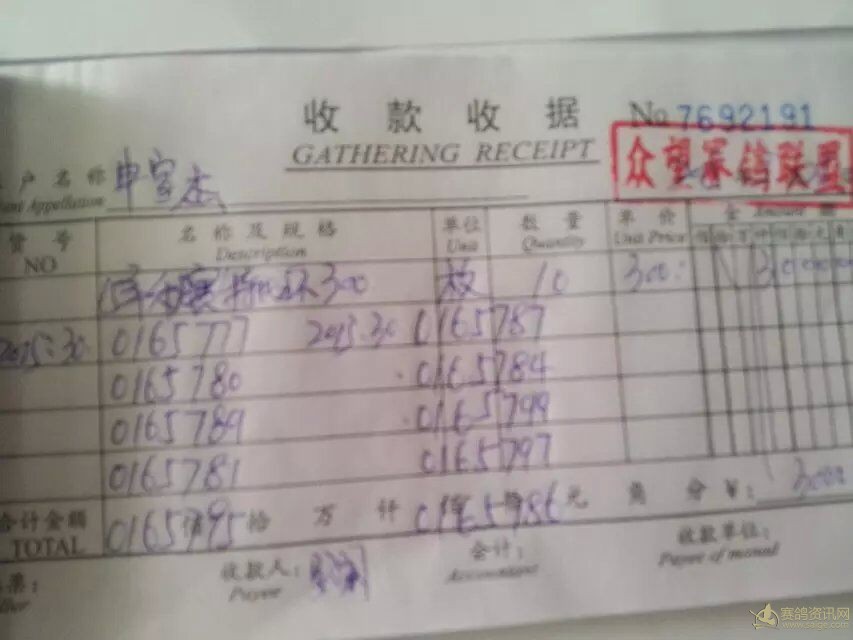 收款收据 No 7692191
GATHERING RECEIPT
众望赛鸽联盟
户名称 申宝杰
Appellation
货号 名称及规格 单位 数量 单价 金 额
NO Description Unit Quantity Unit Price Amount
环300 枚 10 300 3000
2015.30 0165777 2015.30 0165787
0165780 0165784
0165789 0165799
0165781 0165797
合计金额 0165795 拾 万 仟 0165786 元 角 分 ¥: 3000
TOTAL
票: 收款人: 会计: 收款单位:
Payee Accountant Payee of
赛鸽资讯网
www.saige.com